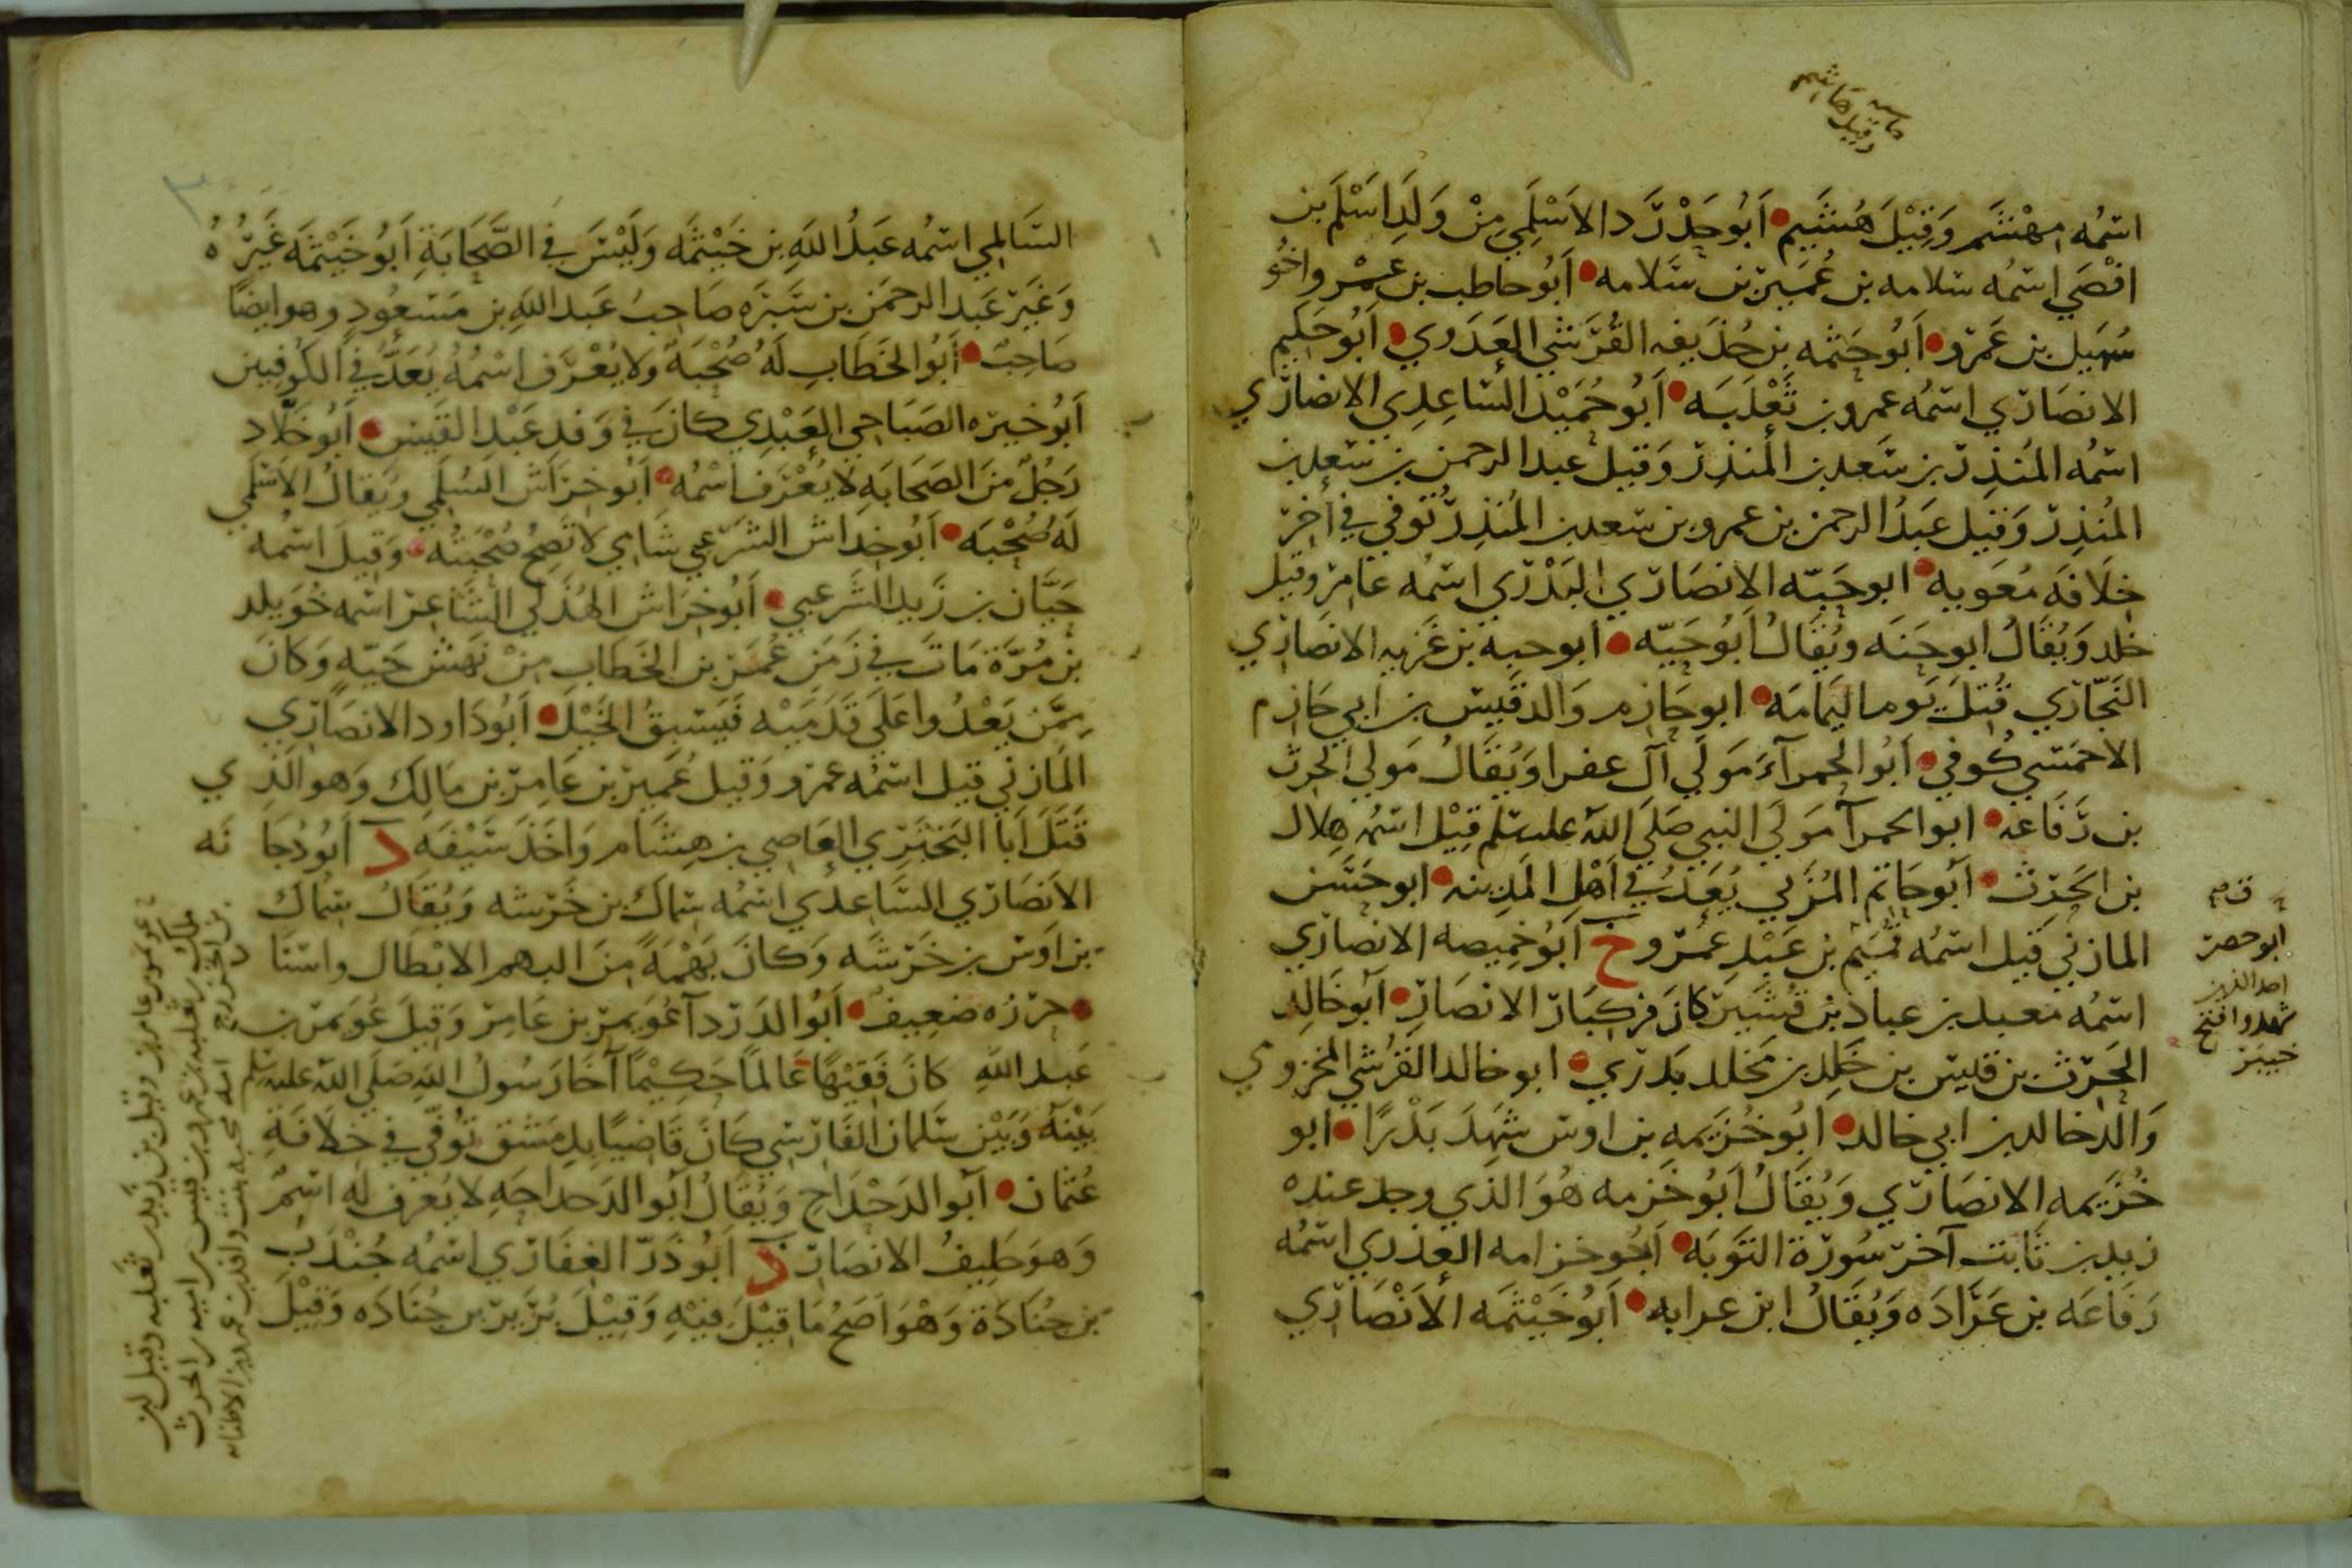 حاشيه
وقيل هاشم
اسْمُه مهْشَم وَقِيْلَ هُشَيم • اَبُو حَدْرَد الاَسْلَمِي مِنْ وَلَدِ اَسْلَم بن
افْصَي اسمُه سلامه بن عُمَير بن سَلامه • اَبُو حاطب بن عمْرو اخُو
سُهَيل بن عَمرو • اَبُو حَثمه بن حُذَيفه القُرَشي العَدَوي • اَبُو حَكِيم
الانصَاري اسمُه عمرو بن ثَعْلَبَه • اَبُو حُمَيْد السَاعِدِي الانصَاري
اسمُه المُنذِر بن سَعد بن المُنذِر وَقيل عبد الرحمن بن سَعد بن
المُنذِر وَقيل عَبدُ الرحمن بن عمرو بن سعد بن المُنذِر تُوفي في اخر
خِلَافَه مُعَويه • ابو حَبّه الانصَاري البَدْري اسمُه عَامر وقيل
ويُقَالُ ابو حَنَه ويُقَالُ اَبُو حَيّه • ابو حبه بن غَزيه الانصَاري
النَجّاري قُتلَ يَوم اليَمَامَه • ابو حَازم وَالد قَيس بن اَبي حَازم
الاحمَسي كُوفي • اَبُو الحمرآءَ مَولَي آل عفرا وَيُقَالُ مَولي الحرث
بن رَفَاعَه • ابو الحمرآ مَولَي النبي صَلَي الله عليه سلم قِيْل اسمُه هِلال
بن الحَرث • اَبُو حَاتم المُزَني يُعَدُ في اَهْلِ المَدِينه • ابو حَسَن
المازني قيل اسمُه تميم بن عَبْدِ عَمْرو خ اَبُو خَمِيصه الانصَاري
اسمُه معبد بن عباد بن قُشَير كانَ من كبَار الانصَار • اَبُو خَالِد
الحَرث بن قليس بن خَلد بن مَخلد بَدري • ابو خالد القُرَشي المخزومي
وَالدُ خالد بن ابي خالد • ابُو خُزَيمه بن اوس شَهِدَ بَدْرًا • ابو
خُزَيمه الانصَاري وَيُقَالُ اَبُو خَزمه هُوَ الذي وجد عنده
زيد بن ثَابت آخر سُورَة التَوبَه • اَبُو خزامه العذري اسمُه
رَفَاعَه بن عَرَادَه وَيُقَالُ ابن عرابه • اَبُو خَيْثَمَه الاَنْصَاري
ابو حصر
احد الذين
شهدوا فتح
خيبر
السَالمي اسمُه عَبدُ اللهِ بن خَيْثمَه وَلَيْسَ في الصَحَابَةِ اَبُو خَيْثمَه غَيرُهُ
وَغَير عَبد الرحمَن بن سَبْرَه صَاحِبُ عَبد اللهِ بن مَسعُود وهو ايضًا
صَاحِبٌ • اَبُو الخَطَابِ لَهُ صُحْبَه وَلا يُعْرَف اسْمُهُ يُعَدُّ في الكُوفِيين
اَبُو خيره الصَبَاحي العَبْدِي كانَ في وَفد عَبْدِ القَيس • اَبُو خَلّاد
رَجُلٌ مِنَ الصَحَابَه لا يُعْرَف اسْمُه • اَبُو خِرَاش السُلَمي ويُقالُ الاَسْلَمي
لَهُ صُحْبَه • اَبُو خِدَاش الشَرعَبي شَامي لا تَصِحُ صُحْبَتُه • وَقيلَ اسْمُه
حَبَّان بن زَيد الشَرعَبي • اَبُو خِرَاش الهُذَلي الشَاعر اسمه خُوَيلد
بن مُرّة مَاتَ في زَمَن عُمَر بن الخَطابِ مِنْ نَهش حَيّهٍ وَكانَ
مِمَّن يَعْدُوا عَلَي قَدَمَيْه فَيَسْبِقُ الخَيْلَ • اَبُو دَاود الانصَاري
المازني قيل اسمُه عمرو وَقيل عُمَير بن عَامِر بن مَالِك وَهو الَذِي
قَتَلَ اَبا البَختري العَاصي بن هِشَام وَاخَذَ سَيْفَه د اَبُو دُجَانَه
الاَنصَاري السَاعِدي اسمُه سماك بن خَرَشه وَيُقَالُ سماك
بن اَوس بن خَرَشَه وَكانَ بَهْمَةً مِنَ البهم الابْطَال واسنَا
د حرزه ضعِيف • اَبُو الدَردَآ عُوَيمر بن عَامِر وَقِيلَ عُوَيمر بن
عَبد اللهِ كانَ فَقِيْهًا عَالمًا حَكِيْمًا آخَا رَسُولُ اللهِ صَلَي الله عليه سلم
بَيْنَهُ وَبَيْن سَلمان الفَارسي كَانَ قَاضِيًا بِدِمَشق تُوفّي في خِلَافَةِ
عُثمان • اَبُو الدَحْدَاح وَيُقَالُ اَبُو الدَحداحَهِ لا يُعرف لَه اسْمُ
وَهوَ حَلِيفُ الانصَار ذ اَبُو ذَرّ الغِفَاري اسمُه جُنْدَب
بن جُنَادَة وَهْوَ اَصَحُ مَا قِيْلَ فِيْهِ وَقِيْلَ بُرَير بن جُنَادَه وَقِيْلَ
عويمر بن عامر بن وقيل بن زيد بن ثعلبه وقيل ابن
مالك بن ثعلبه بن عمرو بن قيس بن اميه بن الحرث
بن الخزرج امه محبه بنت واقد بن عمرو بن الاطنابه